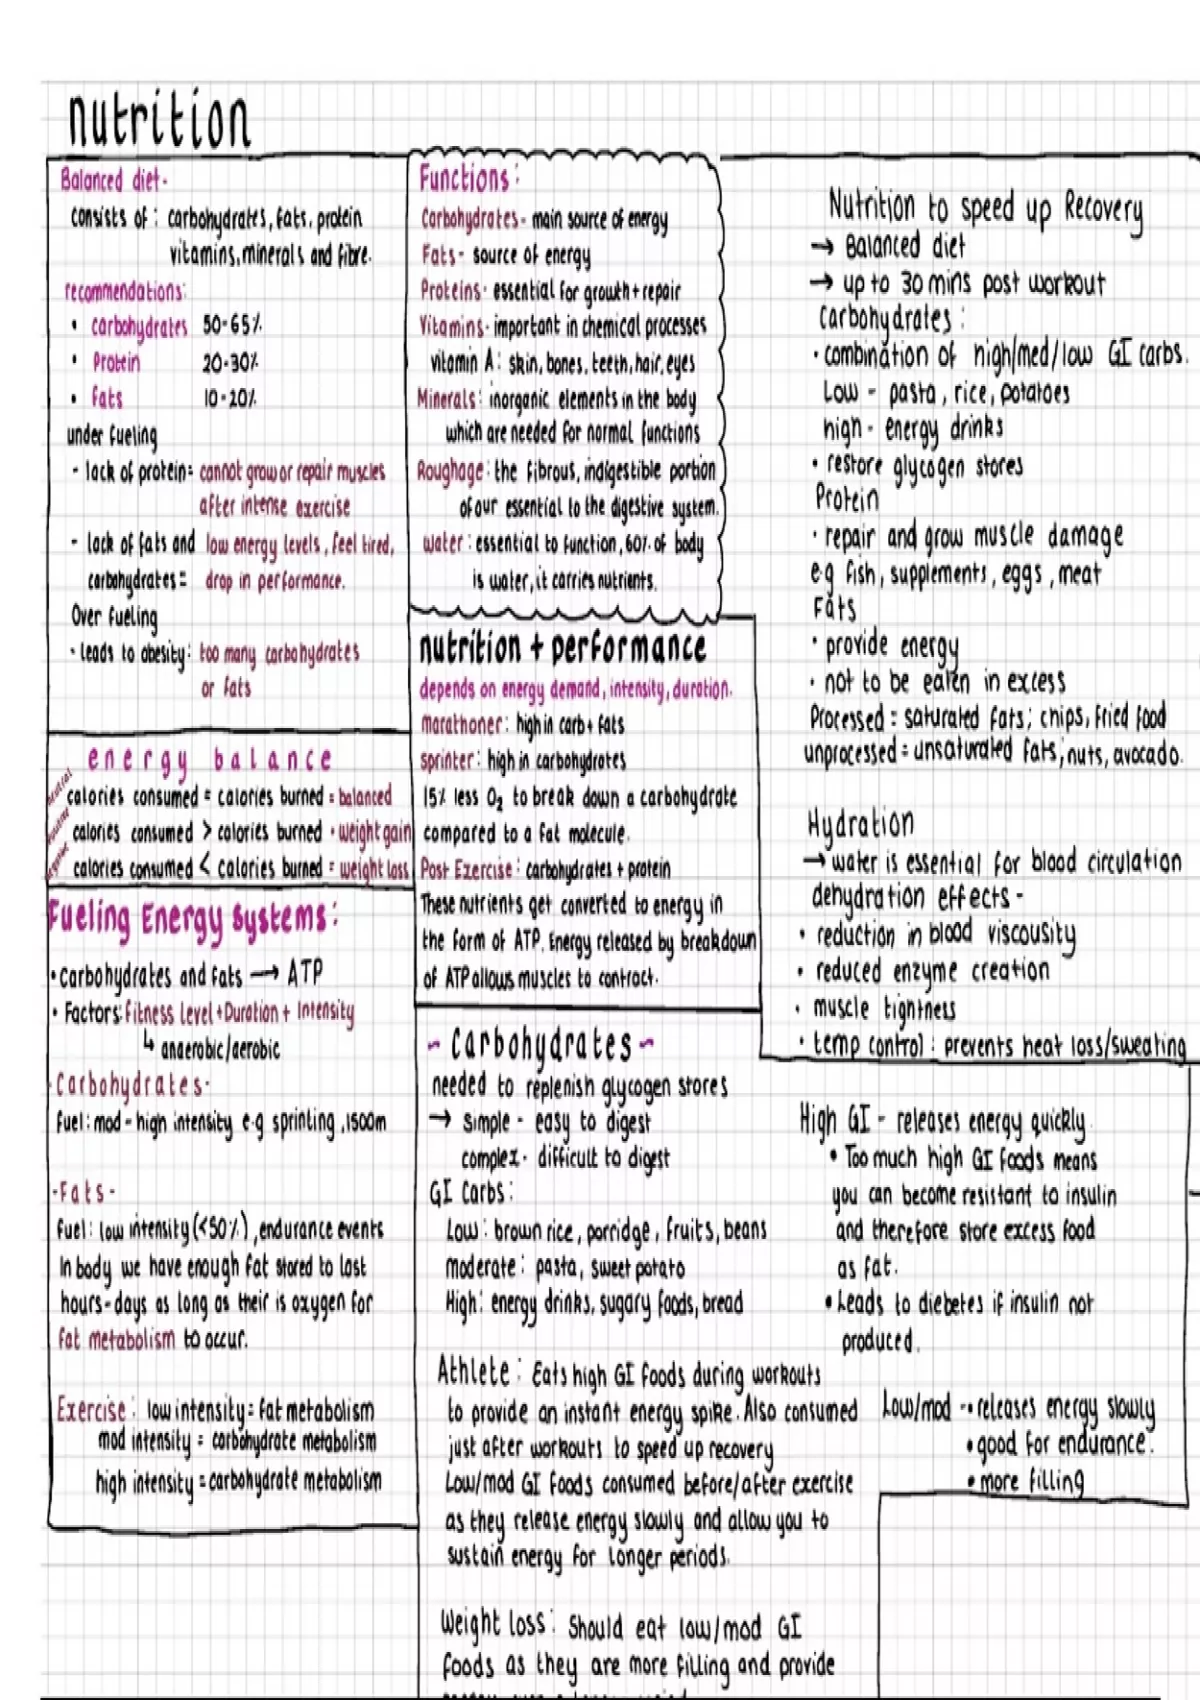 nutrition
Balanced diet-
consists of : carbohydrates, fats, protein
vitamins, minerals and fibre.
recommendations:
• carbohydrates 50-65%
• Protein 20-30%
• fats 10-20%
under fueling
- lack of protein= cannot grow or repair muscles
after intense exercise
- lack of fats and low energy levels, feel tired,
carbohydrates= drop in performance.
Over fueling
• leads to obesity: too many carbohydrates
or fats
energy balance
neutral
calories consumed = calories burned = balanced
calories consumed > calories burned • weight gain
calories consumed < calories burned = weight loss
Fueling Energy Systems:
• carbohydrates and fats → ATP
• Factors: Fitness Level + Duration + Intensity
↳ anaerobic/aerobic
- Carbohydrates-
fuel: mod - high intensity e.g sprinting, 1500m
- Fats -
fuel: low intensity (<50%), endurance events
In body we have enough fat stored to last
hours-days as long as their is oxygen for
fat metabolism to occur.
Exercise: low intensity = fat metabolism
mod intensity = carbohydrate metabolism
high intensity = carbohydrate metabolism
Functions:
Carbohydrates- main source of energy
Fats- source of energy
Proteins- essential for growth + repair
Vitamins- important in chemical processes
vitamin A: skin, bones, teeth, hair, eyes
Minerals: inorganic elements in the body
which are needed for normal functions
Roughage: the fibrous, indigestible portion
of our essential to the digestive system.
water: essential to function, 60% of body
is water, it carries nutrients.
nutrition + performance
depends on energy demand, intensity, duration.
marathoner: high in carb + fats
sprinter: high in carbohydrates
15% less O2 to break down a carbohydrate
compared to a fat molecule.
Post Exercise: carbohydrates + protein
These nutrients get converted to energy in
the form of ATP. Energy released by breakdown
of ATP allows muscles to contract.
- Carbohydrates -
needed to replenish glycogen stores
→ simple - easy to digest
complex - difficult to digest
GI Carbs:
Low: brown rice, porridge, fruits, beans
moderate: pasta, sweet potato
High: energy drinks, sugary foods, bread
Athlete: Eats high GI foods during workouts
to provide an instant energy spike. Also consumed
just after workouts to speed up recovery
Low/mod GI foods consumed before/after exercise
as they release energy slowly and allow you to
sustain energy for longer periods.
Weight loss: Should eat low/mod GI
foods as they are more filling and provide
Nutrition to speed up Recovery
→ Balanced diet
→ up to 30 mins post workout
Carbohydrates:
• combination of high/med/low GI carbs.
Low - pasta, rice, potatoes
high - energy drinks
• restore glycogen stores
Protein
• repair and grow muscle damage
e.g fish, supplements, eggs, meat
Fats
• provide energy
• not to be eaten in excess
Processed = saturated fats; chips, fried food
unprocessed = unsaturated fats; nuts, avocado.
Hydration
→ water is essential for blood circulation
dehydration effects -
• reduction in blood viscousity
• reduced enzyme creation
• muscle tightness
• temp control: prevents heat loss/sweating
High GI - releases energy quickly.
• Too much high GI foods means
you can become resistant to insulin
and therefore store excess food
as fat.
• Leads to diebetes if insulin not
produced.
Low/mod - • releases energy slowly
• good for endurance.
• more filling